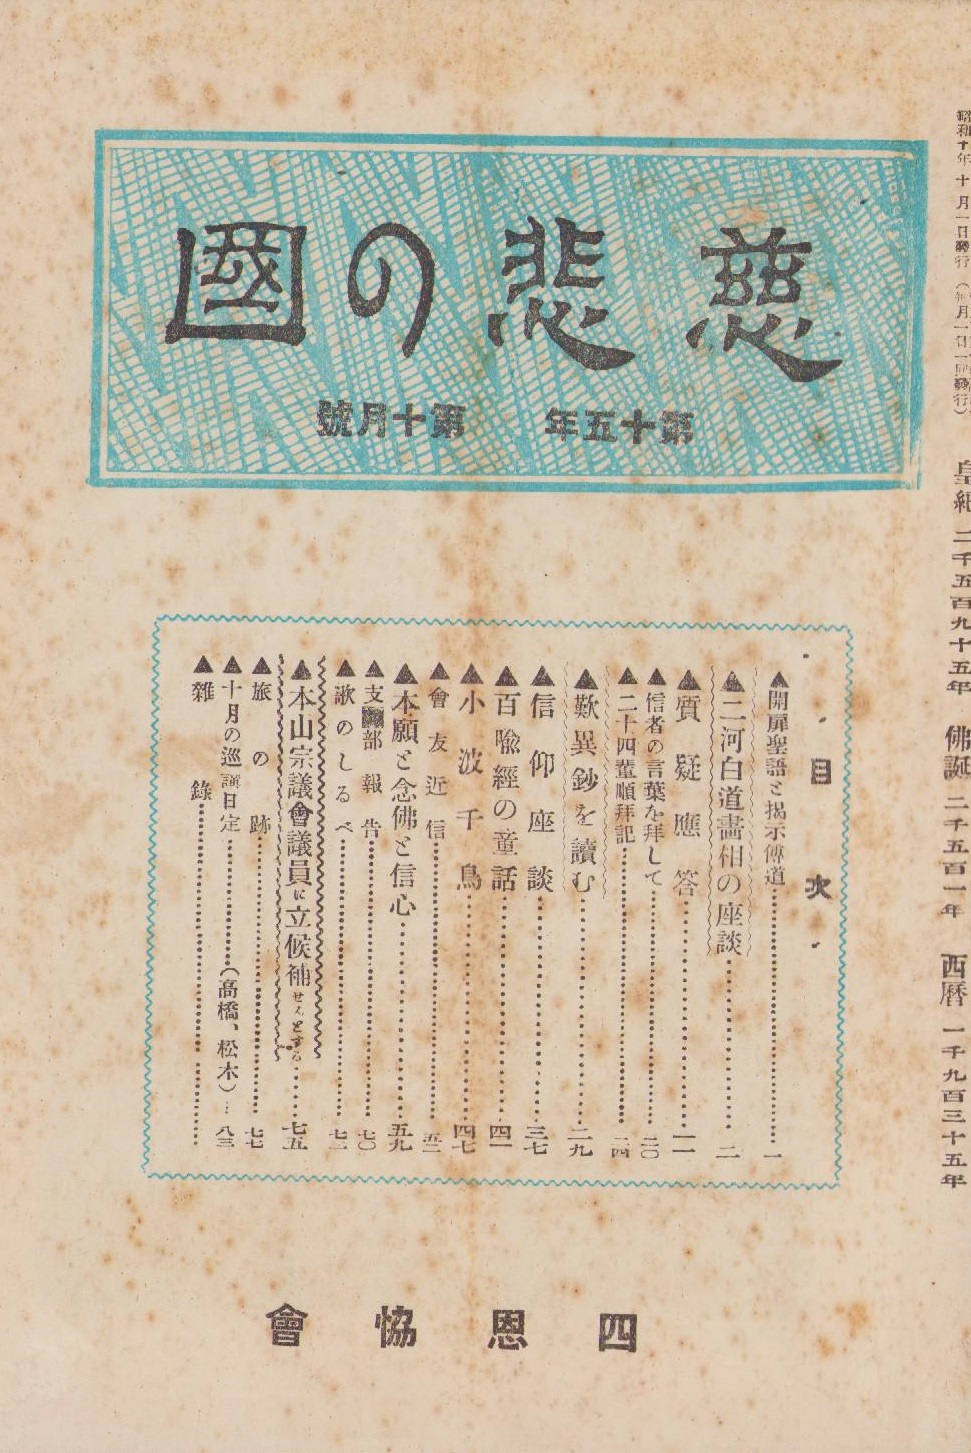 昭和十年十月一日發行(每月一日一回發行)
皇紀 二千五百九十五年 佛誕 二千五百一年 西曆 一千九百三十五年
慈悲の國
第十五年 第十月號
目次
▲開扉聖語と揭示傳道…一
▲二河白道畵相の座談…二
▲質疑應答…一一
▲信者の言葉を拜して…二〇
▲二十四輩順拜記…二四
▲歎異鈔を讀む…二九
▲信仰座談…三七
▲百喩經の童話…四一
▲小波千鳥…四七
▲會友近信…五二
▲本願と念佛と信心…五九
▲支部報告…七〇
▲歌のしるべ…七二
▲本山宗議會議員に立候補せんとする…七五
▲旅の跡…七七
▲十月の巡講日定…(高橋、松木)…八三
▲雜錄…
四恩協會